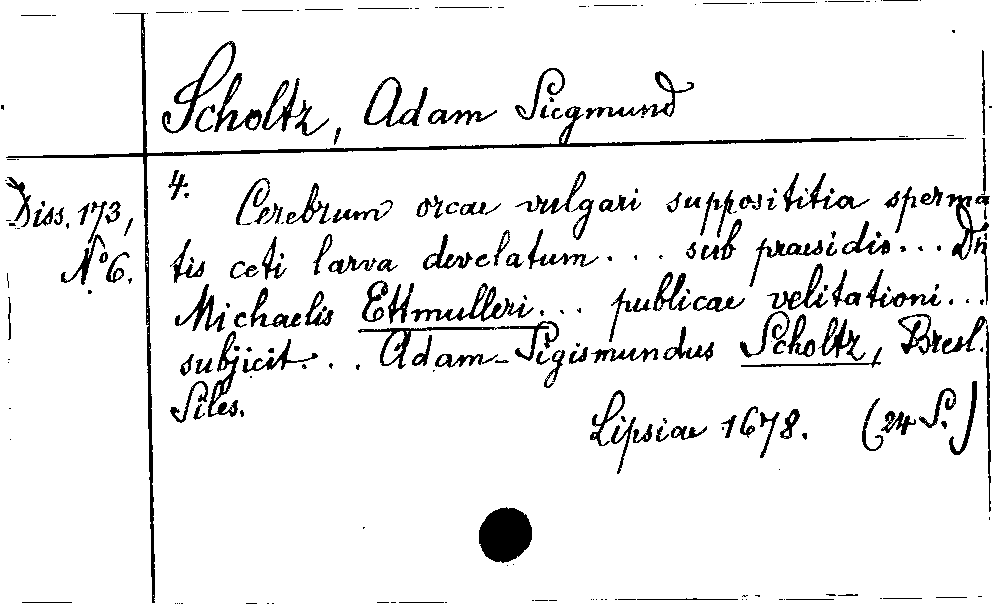 Scholtz, Adam Siegmund
Diss. 173,
N° 6.
4. Cerebrum orcae vulgari supposititia sperma
tis ceti larva develatum . . . sub praesidio . . . Dn
Michaelis Ettmulleri . . . publicae velitationi . . .
subjicit . . . Adam-Sigismundus Scholtz, Bresl.
Siles.
Lipsiae 1678. (24 S.)